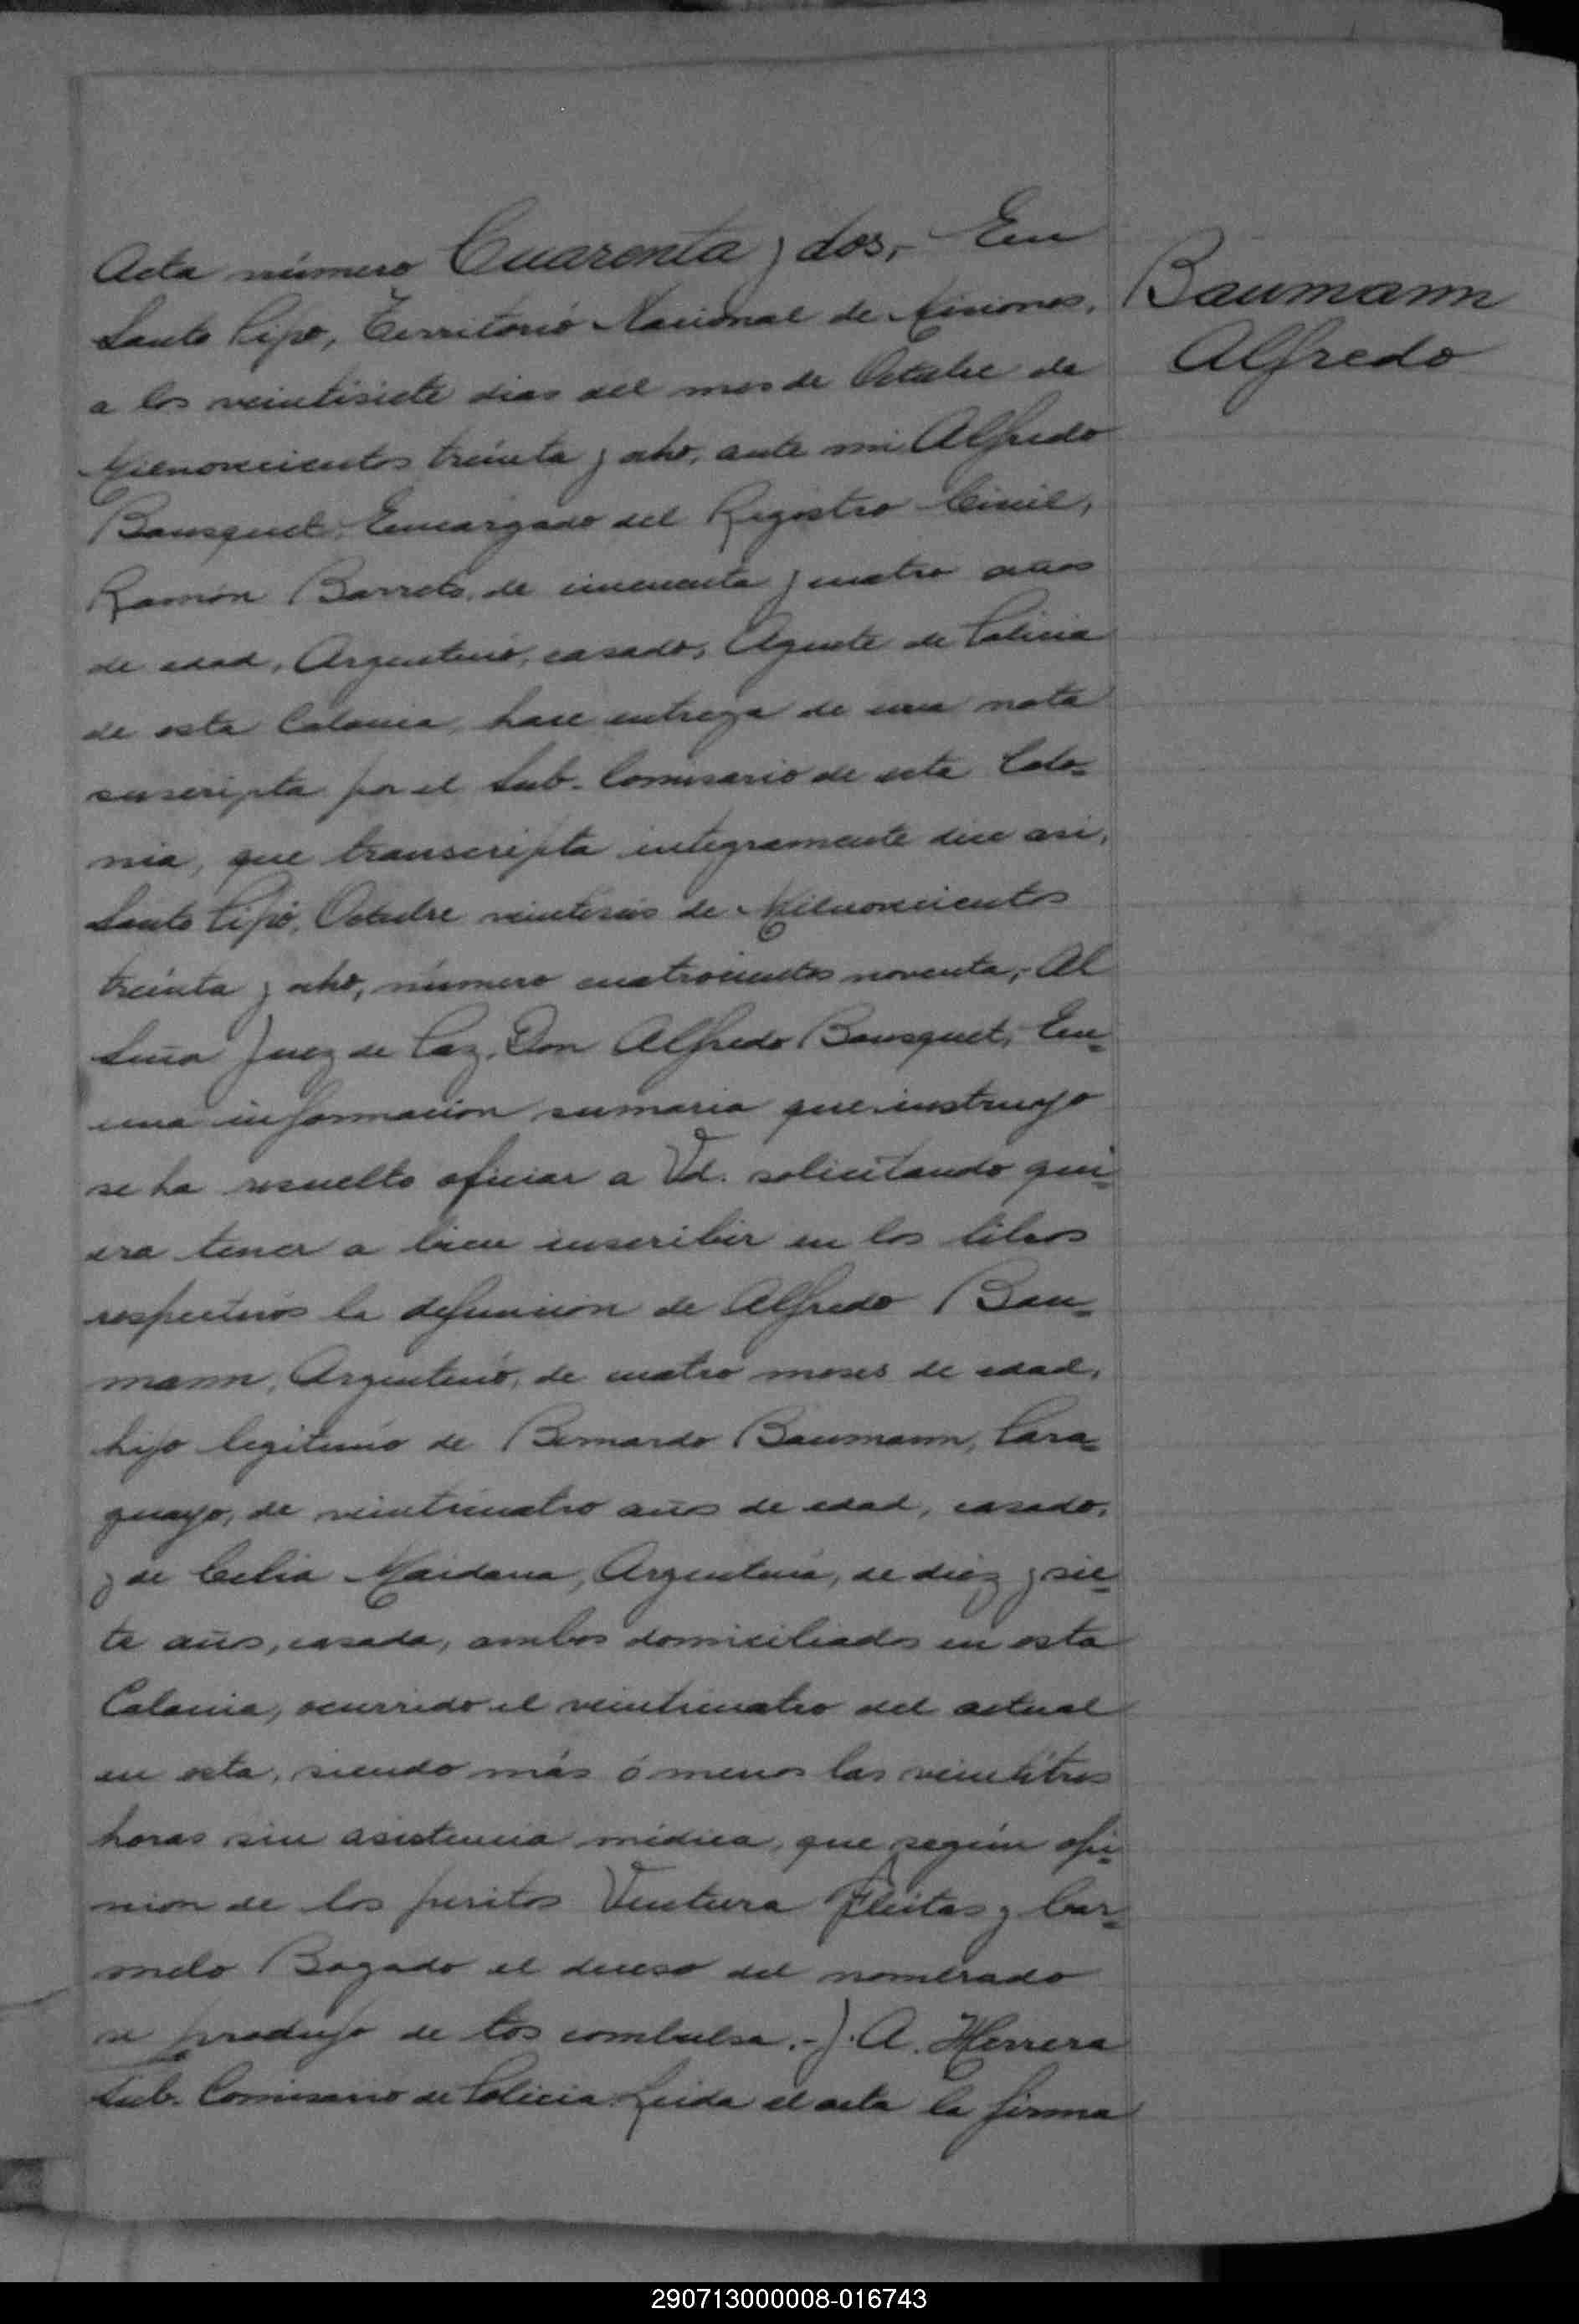 Acta número Cuarenta y dos,- En
Santo Pipó, Territorio Nacional de Misiones,
a los veintisiete dias del mes de Octubre de
Milnovecientos treinta y ocho, ante mi Alfredo
Bousquet, Encargado del Registro Civil,
Ramón Barreto, de cincuenta y cuatro años
de edad, Argentino, casado, Agente de Policia
de esta Colonia, hace entrega de una nota
suscripta por el Sub-Comisario de esta Colo=
nia, que transcripta integramente dice asi,
Santo Pipó, Octubre veintiseis de Milnovecientos
treinta y ocho, número cuatrocientos noventa,- Al
Señor Juez de Paz, Don Alfredo Bousquet,- En=
una información sumaria que instruyo
se ha resuelto oficiar a Vd. solicitando qui=
era tener a bien inscribir en los libros
respectivos la defuncion de Alfredo Bau=
mann, Argentino, de cuatro meses de edad,
hijo legitimo de Bernardo Baumann, Para=
guayo, de veinticuatro años de edad, casado,
y de Celia Maidana, Argentina, de diez y sie=
te años, casada, ambos domiciliados en esta
Colonia, ocurrido el veinticuatro del actual
en esta, siendo más ó menos las veintitres
horas sin asistencia médica, que según opi=
nion de los peritos Ventura Fleitas y Car=
melo Bogado el deceso del nombrado
se produjo de tos combulsa.- J. A. Herrera
Sub-Comisario de Policia Leida el acta la firma
Baumann
Alfredo
290713000008-016743